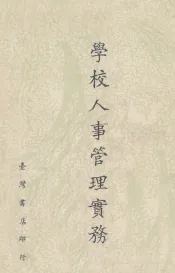 學校人事管理實務
臺灣書店印行